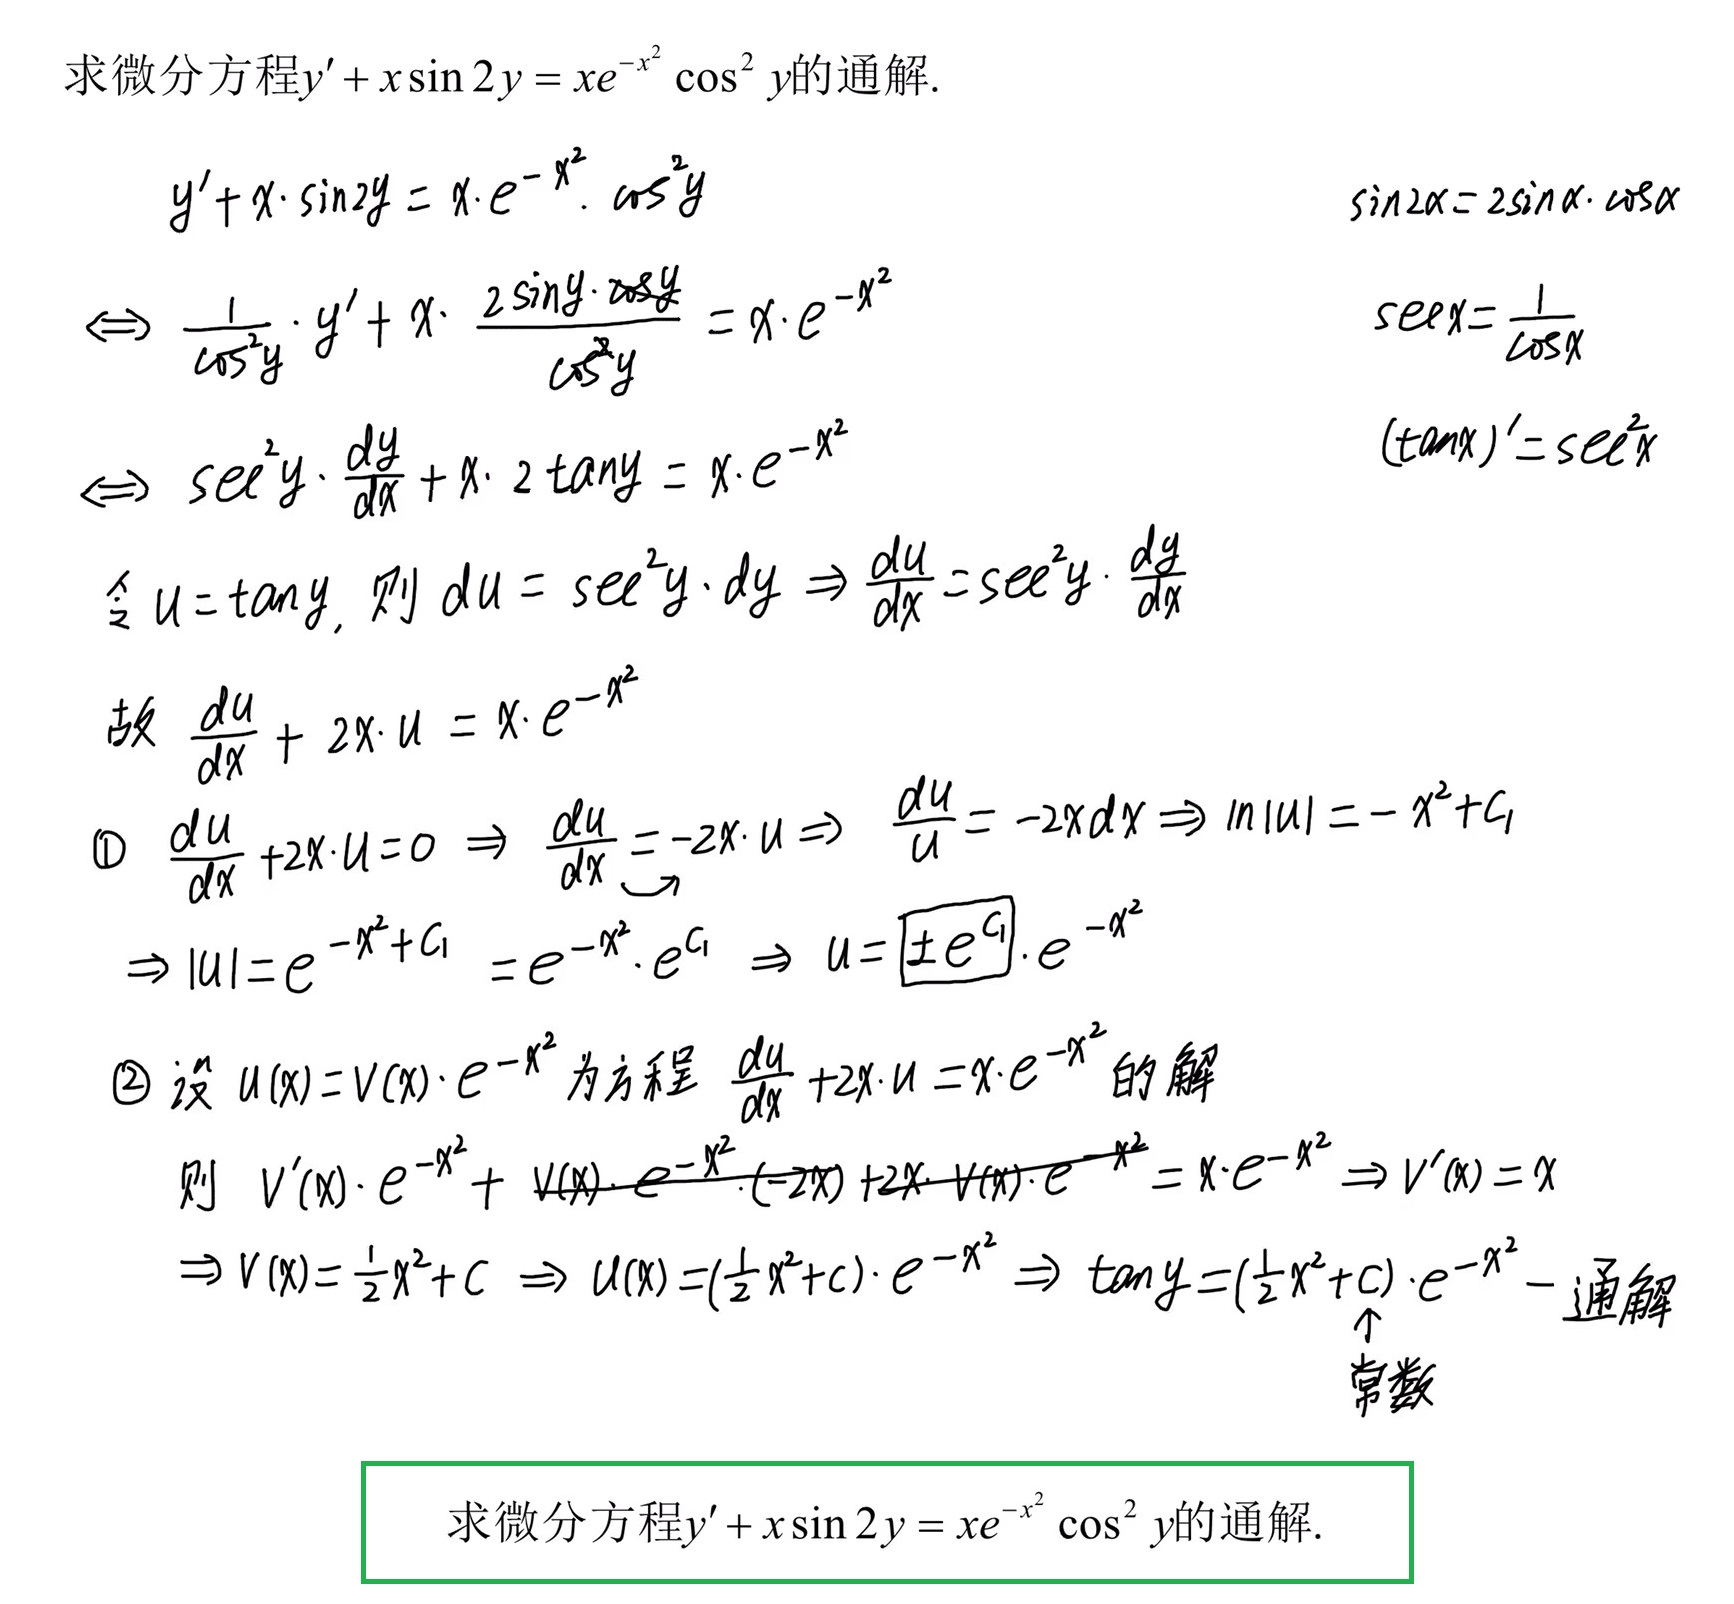 求微分方程y′ + x sin 2y = xe^{-x²} cos² y的通解.
y′ + x·sin2y = x·e^{-x²}·cos²y
sin2α = 2sinα·cosα
⇔ 1/cos²y · y′ + x· (2siny·cosy)/(cos²y) = x·e^{-x²}
secx = 1/cosx
⇔ sec²y · dy/dx + x·2tany = x·e^{-x²}
(tanx)′ = sec²x
令 u = tany, 则 du = sec²y·dy ⇒ du/dx = sec²y · dy/dx
故 du/dx + 2x·u = x·e^{-x²}
① du/dx + 2x·u = 0 ⇒ du/dx = -2x·u ⇒ du/u = -2xdx ⇒ ln|u| = -x² + C₁
⇒ |u| = e^{-x²+C₁} = e^{-x²}·e^{C₁} ⇒ u = ±e^{C₁}·e^{-x²}
② 设 u(x) = v(x)·e^{-x²} 为方程 du/dx + 2x·u = x·e^{-x²} 的解
则 v′(x)·e^{-x²} + v(x)·e^{-x²}·(-2x) + 2x·v(x)·e^{-x²} = x·e^{-x²} ⇒ v′(x) = x
⇒ v(x) = 1/2 x² + C ⇒ u(x) = (1/2 x² + C)·e^{-x²} ⇒ tany = (1/2 x² + C)·e^{-x²} — 通解
↑
常数
求微分方程y′ + x sin 2y = xe^{-x²} cos² y的通解.